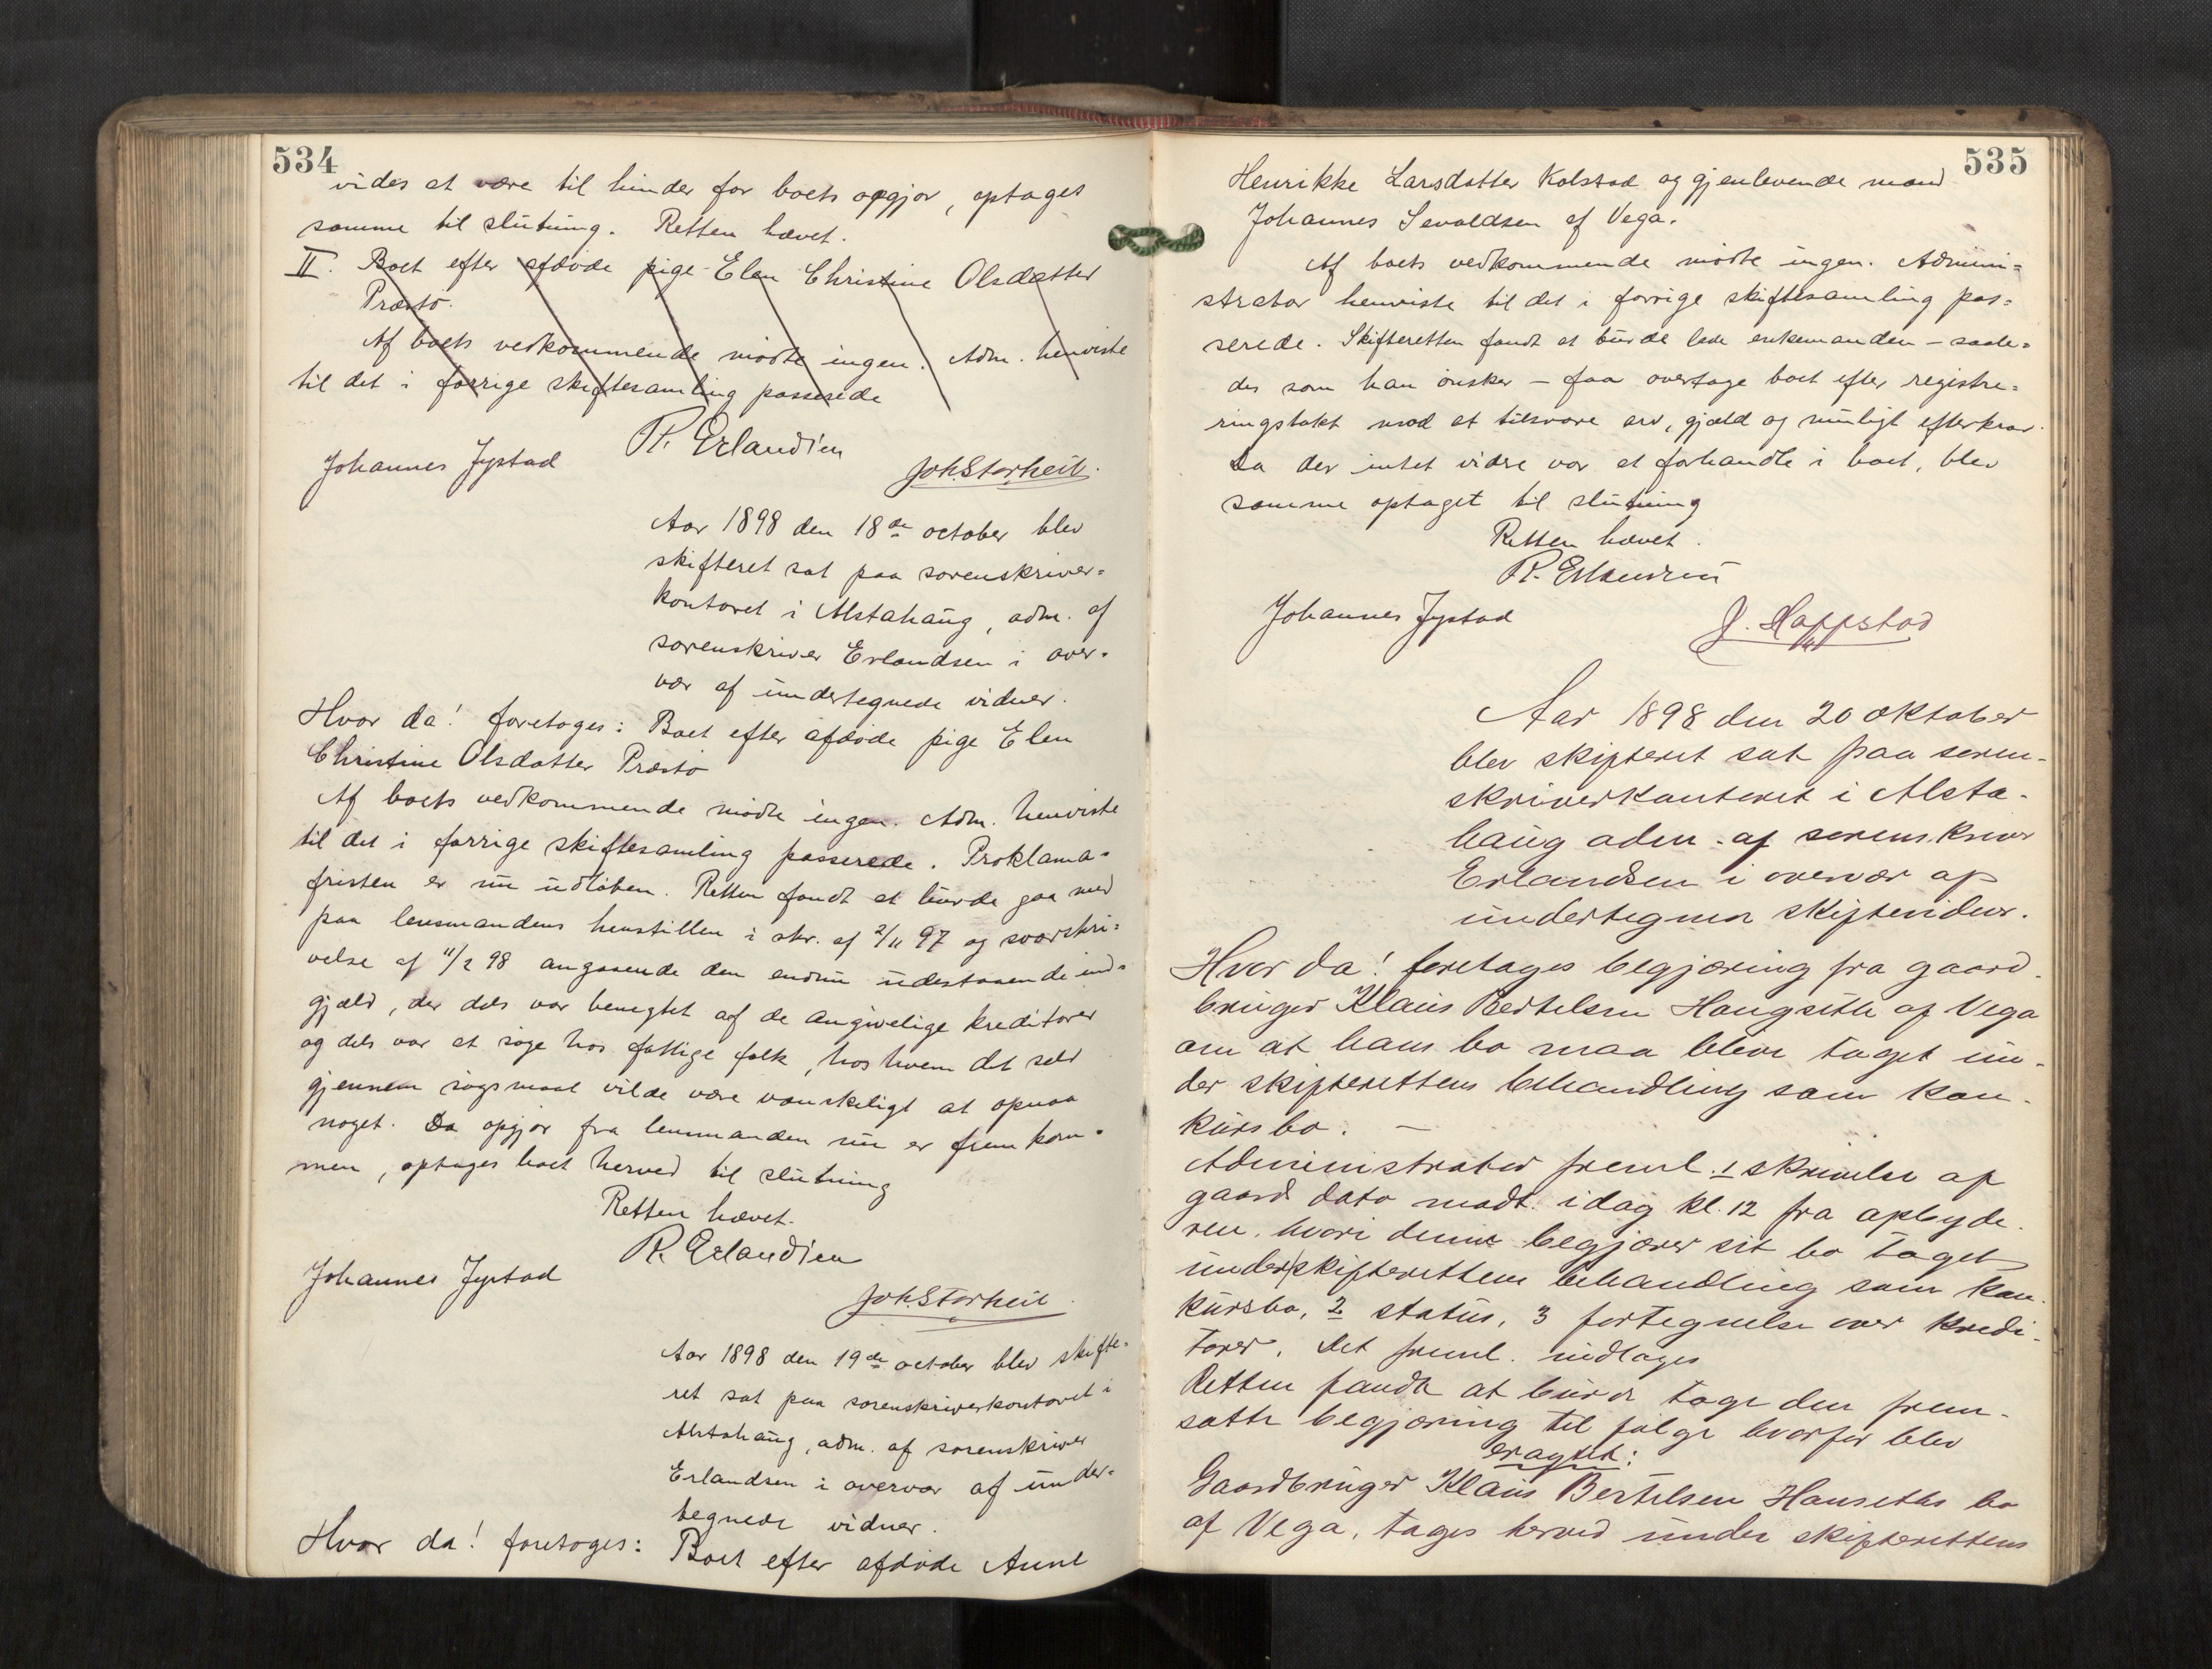 534
vides at være til hinder for boets opgjør, optages
samme til slutning. Retten hævet.
II. Boet efter afdøde pige Elen Christine Olsdatter
Præstø.
Af boets vedkommende mødte ingen. Adm. henviste
til det i forrige skiftesamling passerede
R. Erlandsen
Johannes Jystad
Joh. Storheil.
Aar 1898 den 18de october blev
skifteret sat paa sorenskriver=
kontoret i Alstahaug, adm. af
sorenskriver Erlandsen i over=
vær af undertegnede vidner.
Hvor da! foretoges: Boet efter afdøde pige Elen
Christine Olsdatter Præstø
Af boets vedkommende mødte ingen. Adm. henviste
til det i forrige skiftesamling passerede. Proklama=
fristen er nu udløben. Retten fandt at burde gaa med
paa lensmandens henstillen i skr. af 2/11 97 og svarskri=
velse af 11/2 98 angaaende den endnu udestaaende ind=
gjæld, der dels var benegtet af de angivelige kreditorer
og dels var at søge hos fattige folk, hos hvem det selv
gjennem søgsmaal vilde være vanskeligt at opnaa
noget. Da opgjør fra lensmanden nu er fremkom=
men, optages boet herved til slutning
Retten hævet.
R. Erlandsen
Johannes Jystad
Joh. Storheil
Aar 1898 den 19de october blev skifte=
ret sat paa sorenskriverkontoret i
Alstahaug, adm. af sorenskriver
Erlandsen i overvær af under=
tegnede vidner.
Hvor da! foretoges: Boet efter afdøde Anne
535
Henrikke Larsdatter Kolstad og gjenlevende mand
Johannes Sevaldsen af Vega.
Af boets vedkommende mødte ingen. Admini=
strator henviste til det i forrige skiftesamling pas=
serede. Skifteretten fandt at burde lade enkemanden – saale=
des som han ønsker – faa overtage boet efter registre=
ringstakst mod at tilsvare arv, gjæld og muligt efterkrav.
Da der intet vidre var at forhandle i boet, blev
samme optaget til slutning
Retten hævet.
R. Erlandsen
Johannes Jystad
J. Happstad
Aar 1898 den 20 oktober
blev skifteret sat paa soren-
skriverkontoret i Alsta-
haug adm. af sorenskriver
Erlandsen i overvær af
undertegnede skiftevidner.
Hvor da! foretoges begjæring fra gaard-
bruger Klaus Bertelsen Haugseth af Vega
om at hans bo maa blive taget un-
der skifterettens behandling som kon-
kursbo. –
Administrator freml. 1 skrivelse af
gaards dato modt. idag kl. 12 fra opbyde-
ren, hvori denne begjærer sit bo taget
under skifterettens behandling som kon-
kursbo, 2 status, 3 fortegnelse over kredi-
torer. Det freml. indtages
Retten fandt at burde tage den frem-
satte begjæring til følge hvorfor blev
eragtet:
Gaardbruger Klaus Bertelsen Hanseths bo
af Vega, tages herved under skifterettens